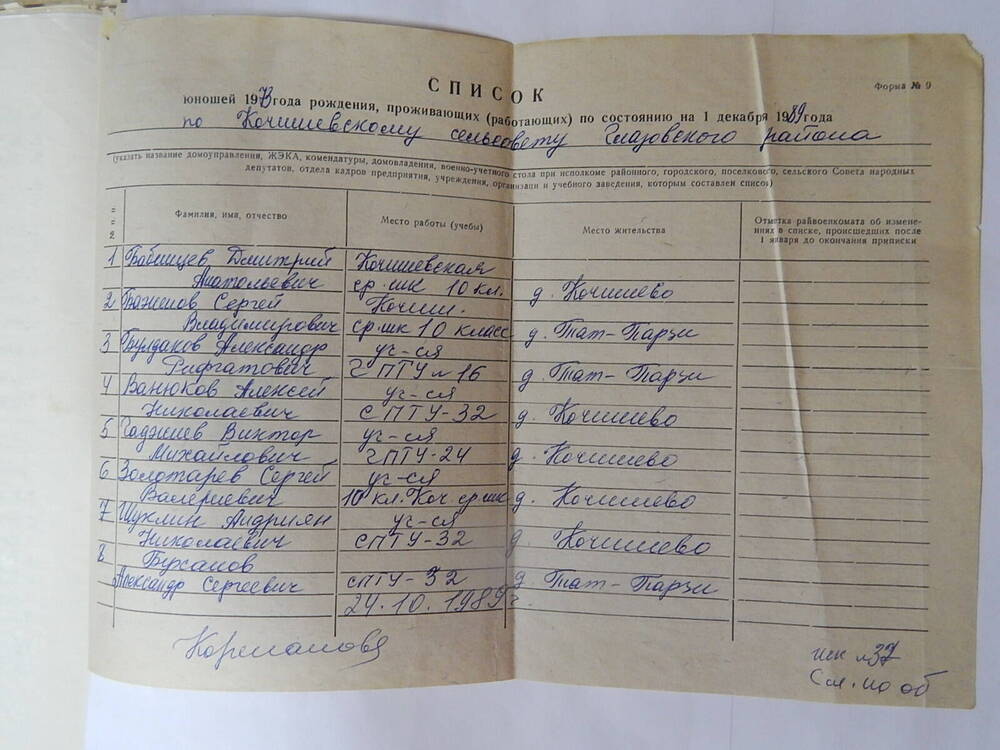 СПИСОК
Форма № 9
юношей 1973 года рождения, проживающих (работающих) по состоянию на 1 декабря 1989 года
по Кочишевскому сельсовету Глазовского района
(указать название домоуправления, ЖЭКА, комендатуры, домовладения, военно-учетного стола при исполкоме районного, городского, поселкового, сельского Совета народных
депутатов, отдела кадров предприятия, учреждения, организации и учебного заведения, которым составлен список)
№ п. п.
Фамилия, имя, отчество
Место работы (учебы)
Место жительства
Отметка райвоенкомата об измене-
ниях в списке, происшедших после
1 января до окончания приписки
1 Бабинцев Дмитрий Кочишевская
Анатольевич ср. шк 10 кл. д. Кочишево
2 Баженов Сергей Кочиш.
Владимирович ср. шк 10 класс д. Тат-Парзи
3 Булдаков Александр уч-ся
Рифгатович ГПТУ № 16 д. Тат-Парзи
4 Ванюков Алексей уч-ся
Николаевич СПТУ-32 д. Кочишево
5 Гаджиев Виктор уч-ся
Михайлович ГПТУ-24 д. Кочишево
6 Золотарев Сергей уч-ся
Валериевич 10 кл. Коч. ср. шк д. Кочишево
7 Шуклин Андриян уч-ся
Николаевич СПТУ-32 д Кочишево
8 Бузанов
Александр Сергеевич СПТУ-32 д. Тат-Парзи
24.10.1989 г.
См. на об